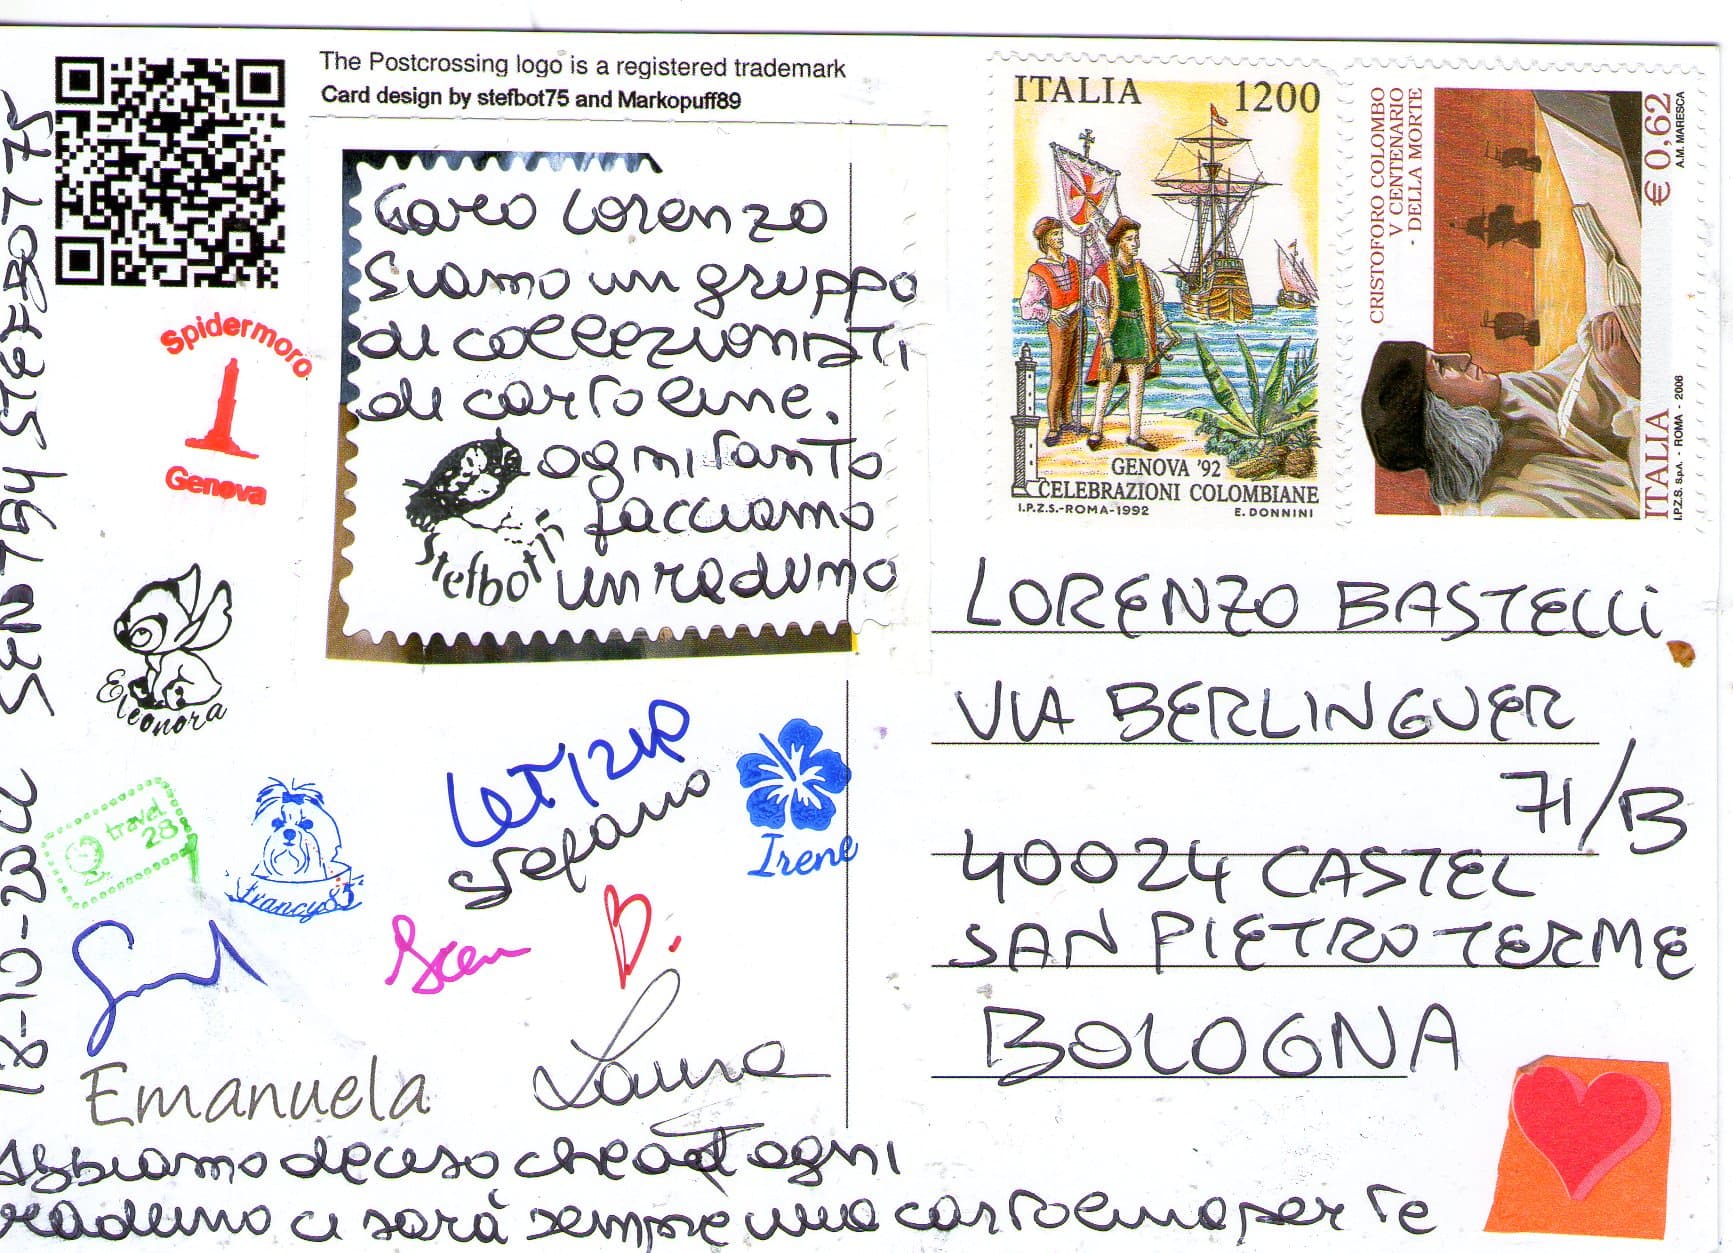 The Postcrossing logo is a registered trademark
Card design by stefbot75 and Markopuff89
Caro Lorenzo
siamo un gruppo
di collezionisti
di cartoline.
ogni tanto
facciamo
un raduno
Stefbot
Spidermoro
Genova
Eleonora
travel
28
Francy85
LETIZIA
Stefano
Irene
B.
Laura
Emanuela
Abbiamo deciso che ad ogni
raduno ci sarà sempre una cartolina per te
18-10-2022 SENT BY STEFBOT75
ITALIA 1200
GENOVA '92
CELEBRAZIONI COLOMBIANE
I.P.Z.S.-ROMA-1992 E. DONNINI
CRISTOFORO COLOMBO
V CENTENARIO
DELLA MORTE
€ 0,62
A.M. MARESCA
ITALIA
I.P.Z.S. S.p.A. - ROMA - 2006
LORENZO BASTELLI
VIA BERLINGUER
71/B
40024 CASTEL
SAN PIETRO TERME
BOLOGNA